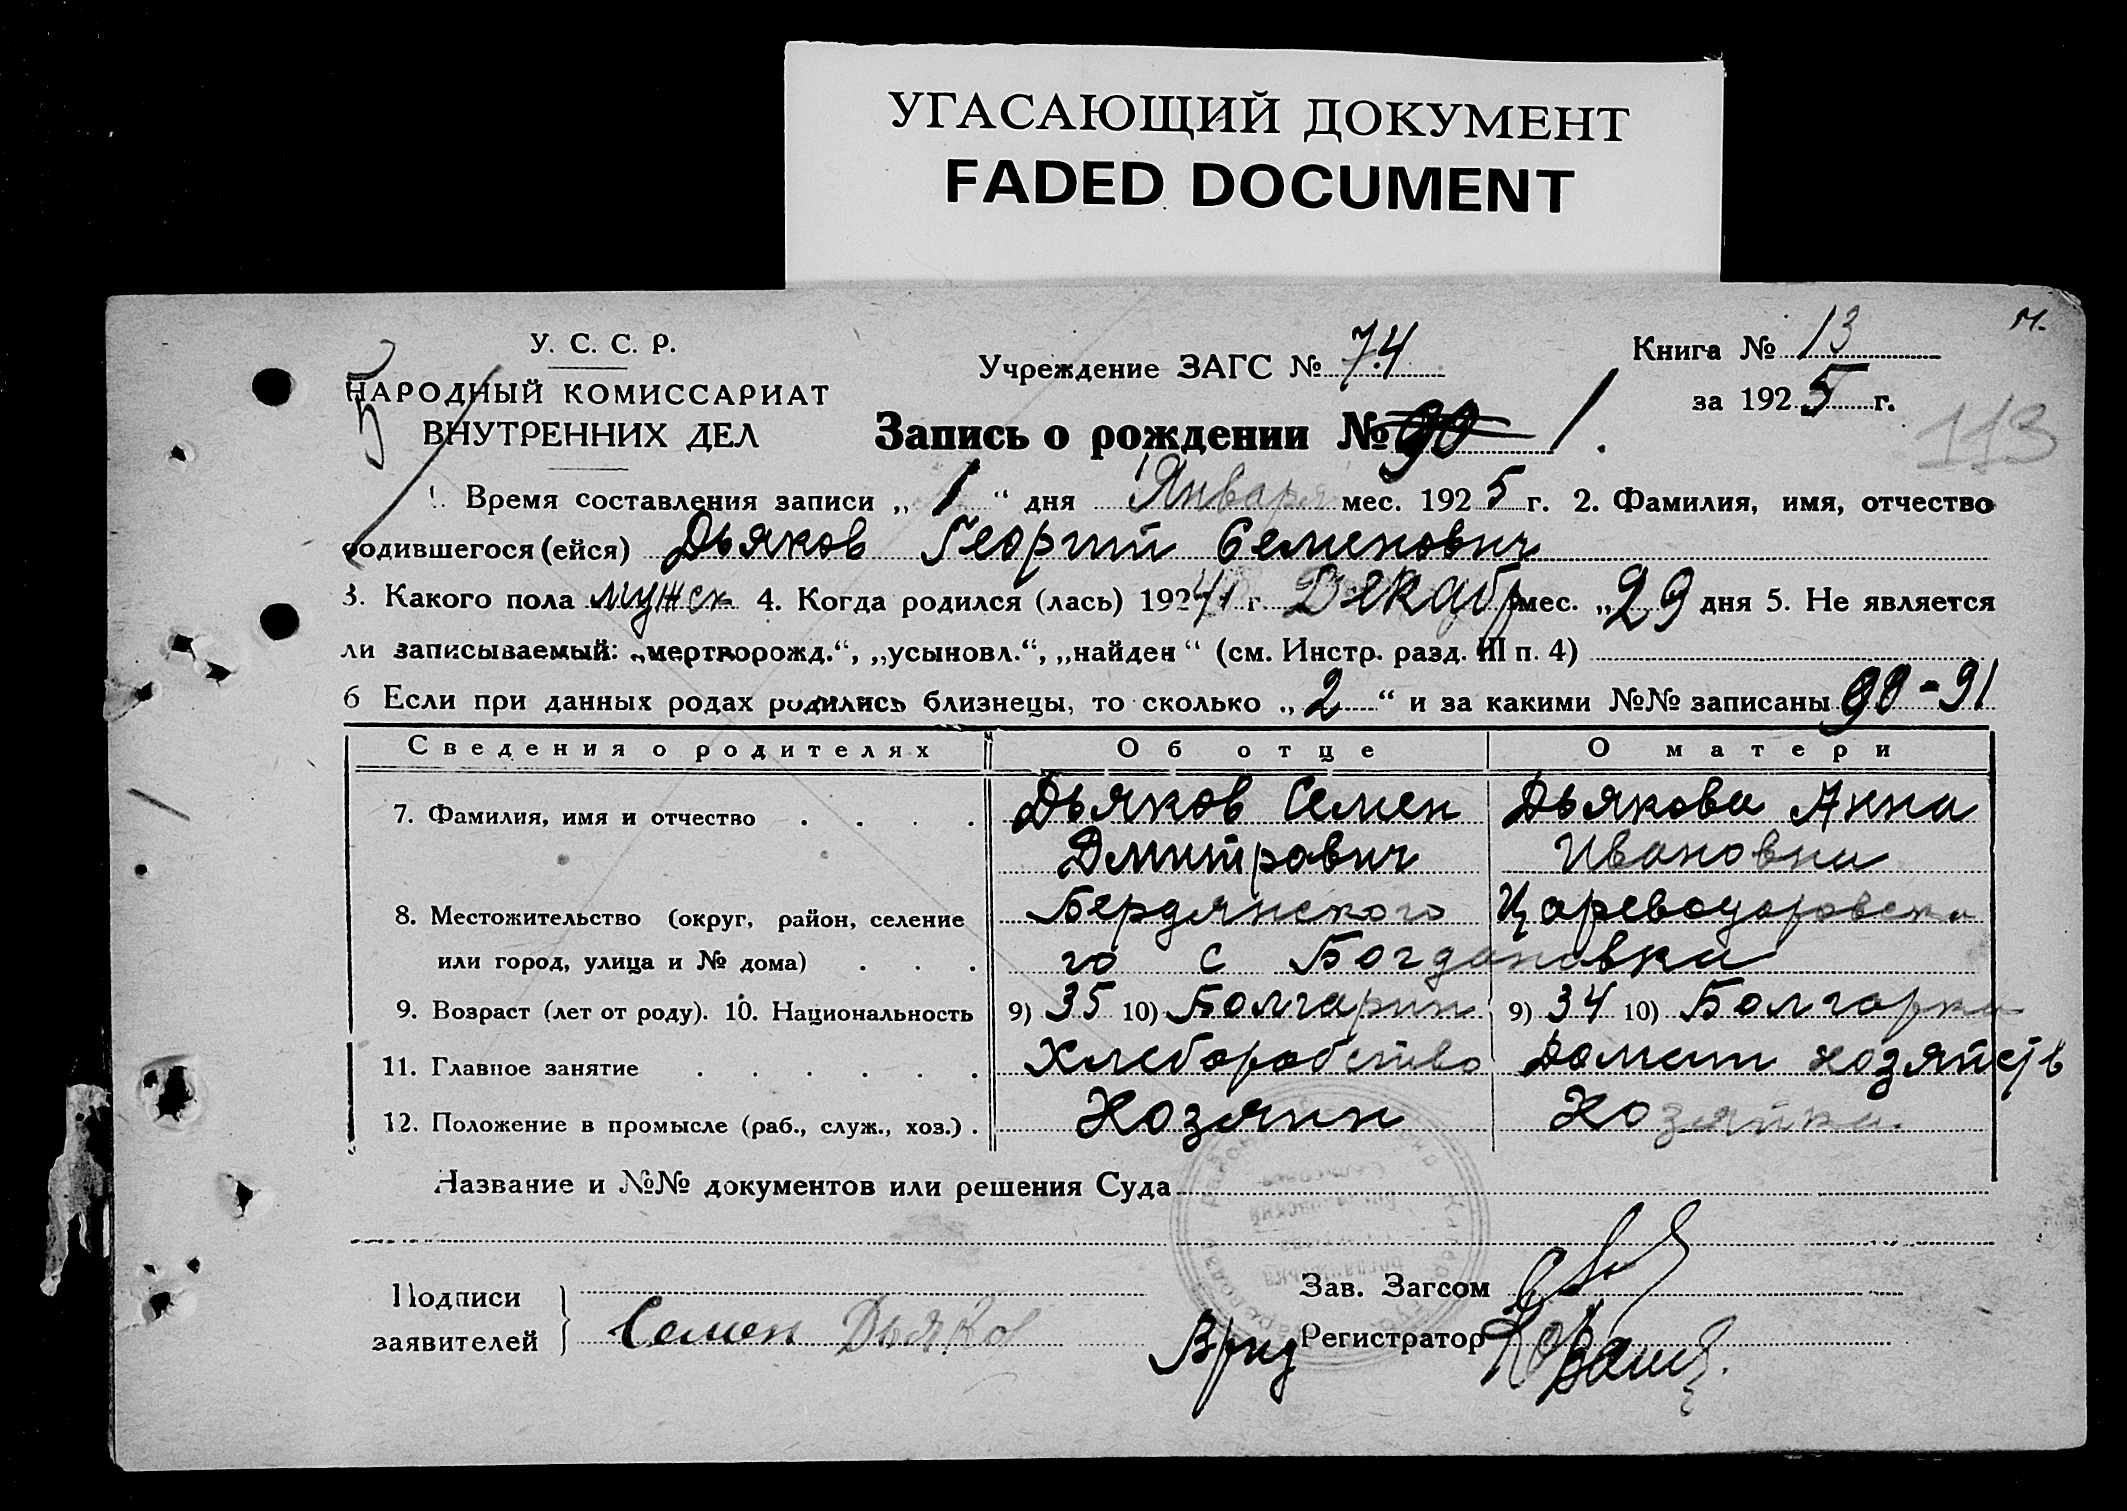 УГАСАЮЩИЙ ДОКУМЕНТ
FADED DOCUMENT
У. С. С. Р.
НАРОДНЫЙ КОМИССАРИАТ
ВНУТРЕННИХ ДЕЛ
Учреждение ЗАГС № 74
Книга № 13
за 1925 г.
113
Запись о рождении № 90 1.
1. Время составления записи „ 1 “ дня Января мес. 1925 г. 2. Фамилия, имя, отчество
родившегося (ейся) Дьяков Георгий Семенович
3. Какого пола мужск 4. Когда родился (лась) 1924 г. Декабр мес. „ 29 дня 5. Не является
ли записываемый: „мертворожд.“, „усыновл.“, „найден“ (см. Инстр. разд. III п. 4)
6 Если при данных родах родились близнецы, то сколько „ 2 “ и за какими №№ записаны 90-91
Сведения о родителях Об отце О матери
7. Фамилия, имя и отчество Дьяков Семен Дьякова Анна
Дмитрович Ивановна
8. Местожительство (округ, район, селение Бердянского Цареводаровско
или город, улица и № дома) го с Богдановка
9. Возраст (лет от роду). 10. Национальность 9) 35 10) Болгарин 9) 34 10) Болгарка
11. Главное занятие Хлеборобство Домаш хозяйств
12. Положение в промысле (раб., служ., хоз.) Хозяин Хозяйка
Название и №№ документов или решения Суда
Подписи
заявителей Семен Дьяков
Зав. Загсом
Врид Регистратор